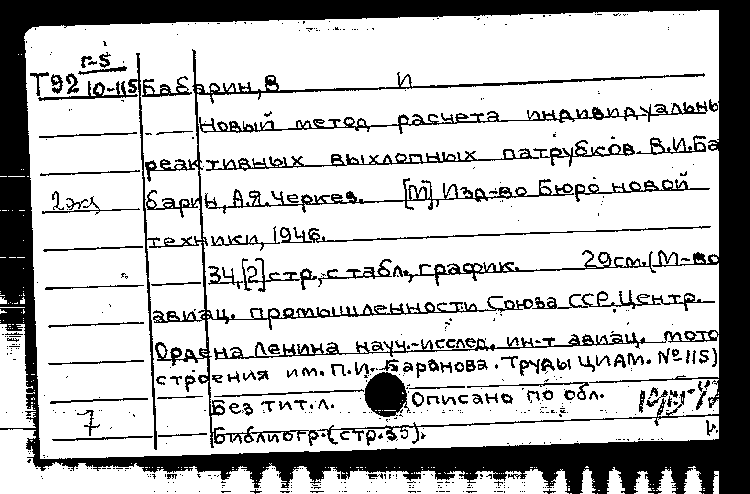 Г-5
Т92 10-115 Бабарин, В И
Новый метод расчета индивидуальны
реактивных выхлопных патрубков. В.И.Ба
2экз барин, А.Я.Черкез. [М], Изд-во Бюро новой
техники, 1946.
34,[2] стр., с табл., график. 29см. (М-во
авиац. промышленности Союза ССР. Центр.
Ордена Ленина науч.-исслед. ин-т авиац. мото
строения им. П.И. Баранова. Труды ЦИАМ. №115)
Без тит.л. Описано по обл.
7
Библиогр. (стр.35).